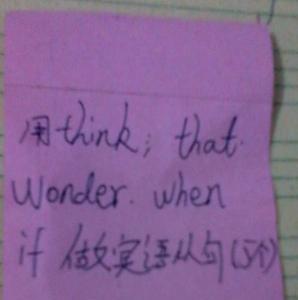 用think; that.
Wonder. when
if 做宾语从句(5个)